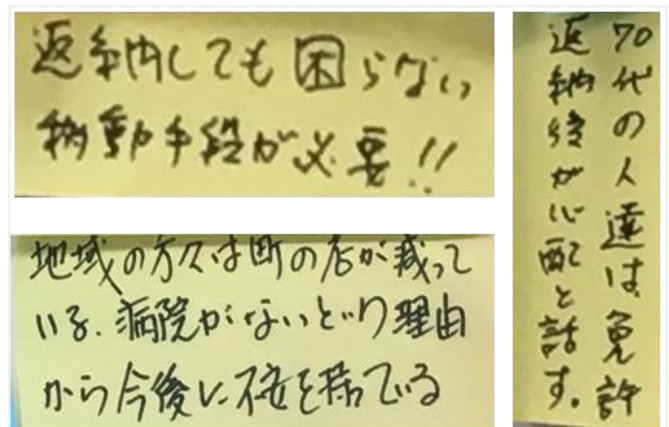 返納しても困らない
移動手段が必要!!
地域の方々は町の店が減って
いる.病院がないという理由
から今後に不安を持っている
70代の人達は、免許
返納後が心配と話す。